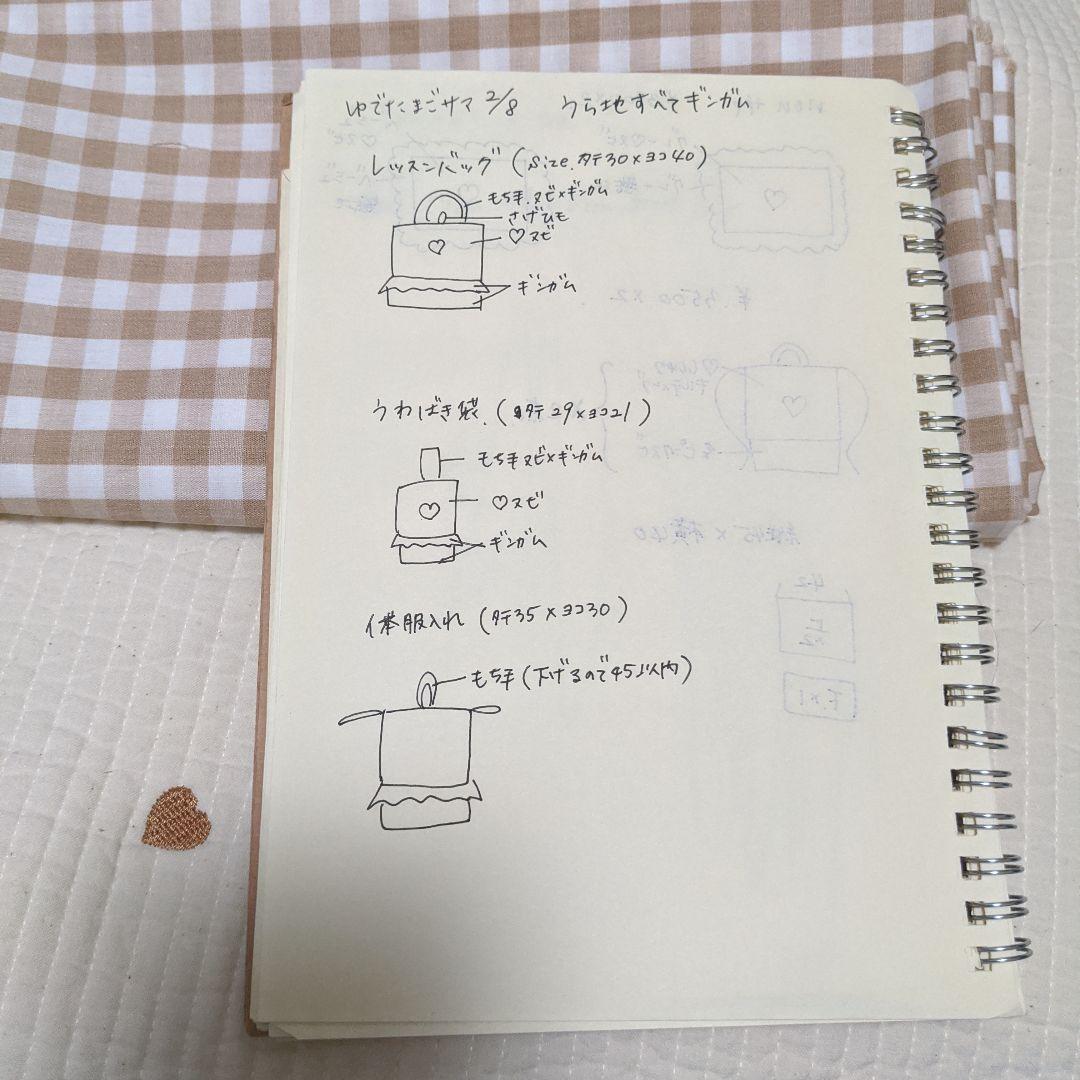 ゆでたまごサマ 2/8 うら地すべてギンガム
レッスンバッグ (size. タテ30×ヨコ40)
もち手.ヌビ×ギンガム
さげひも
♡ヌビ
ギンガム
うわばき袋. (タテ29×ヨコ21)
もち手ヌビ×ギンガム
♡ヌビ
ギンガム
体操服入れ (タテ35×ヨコ30)
もち手(下げるので45以内)